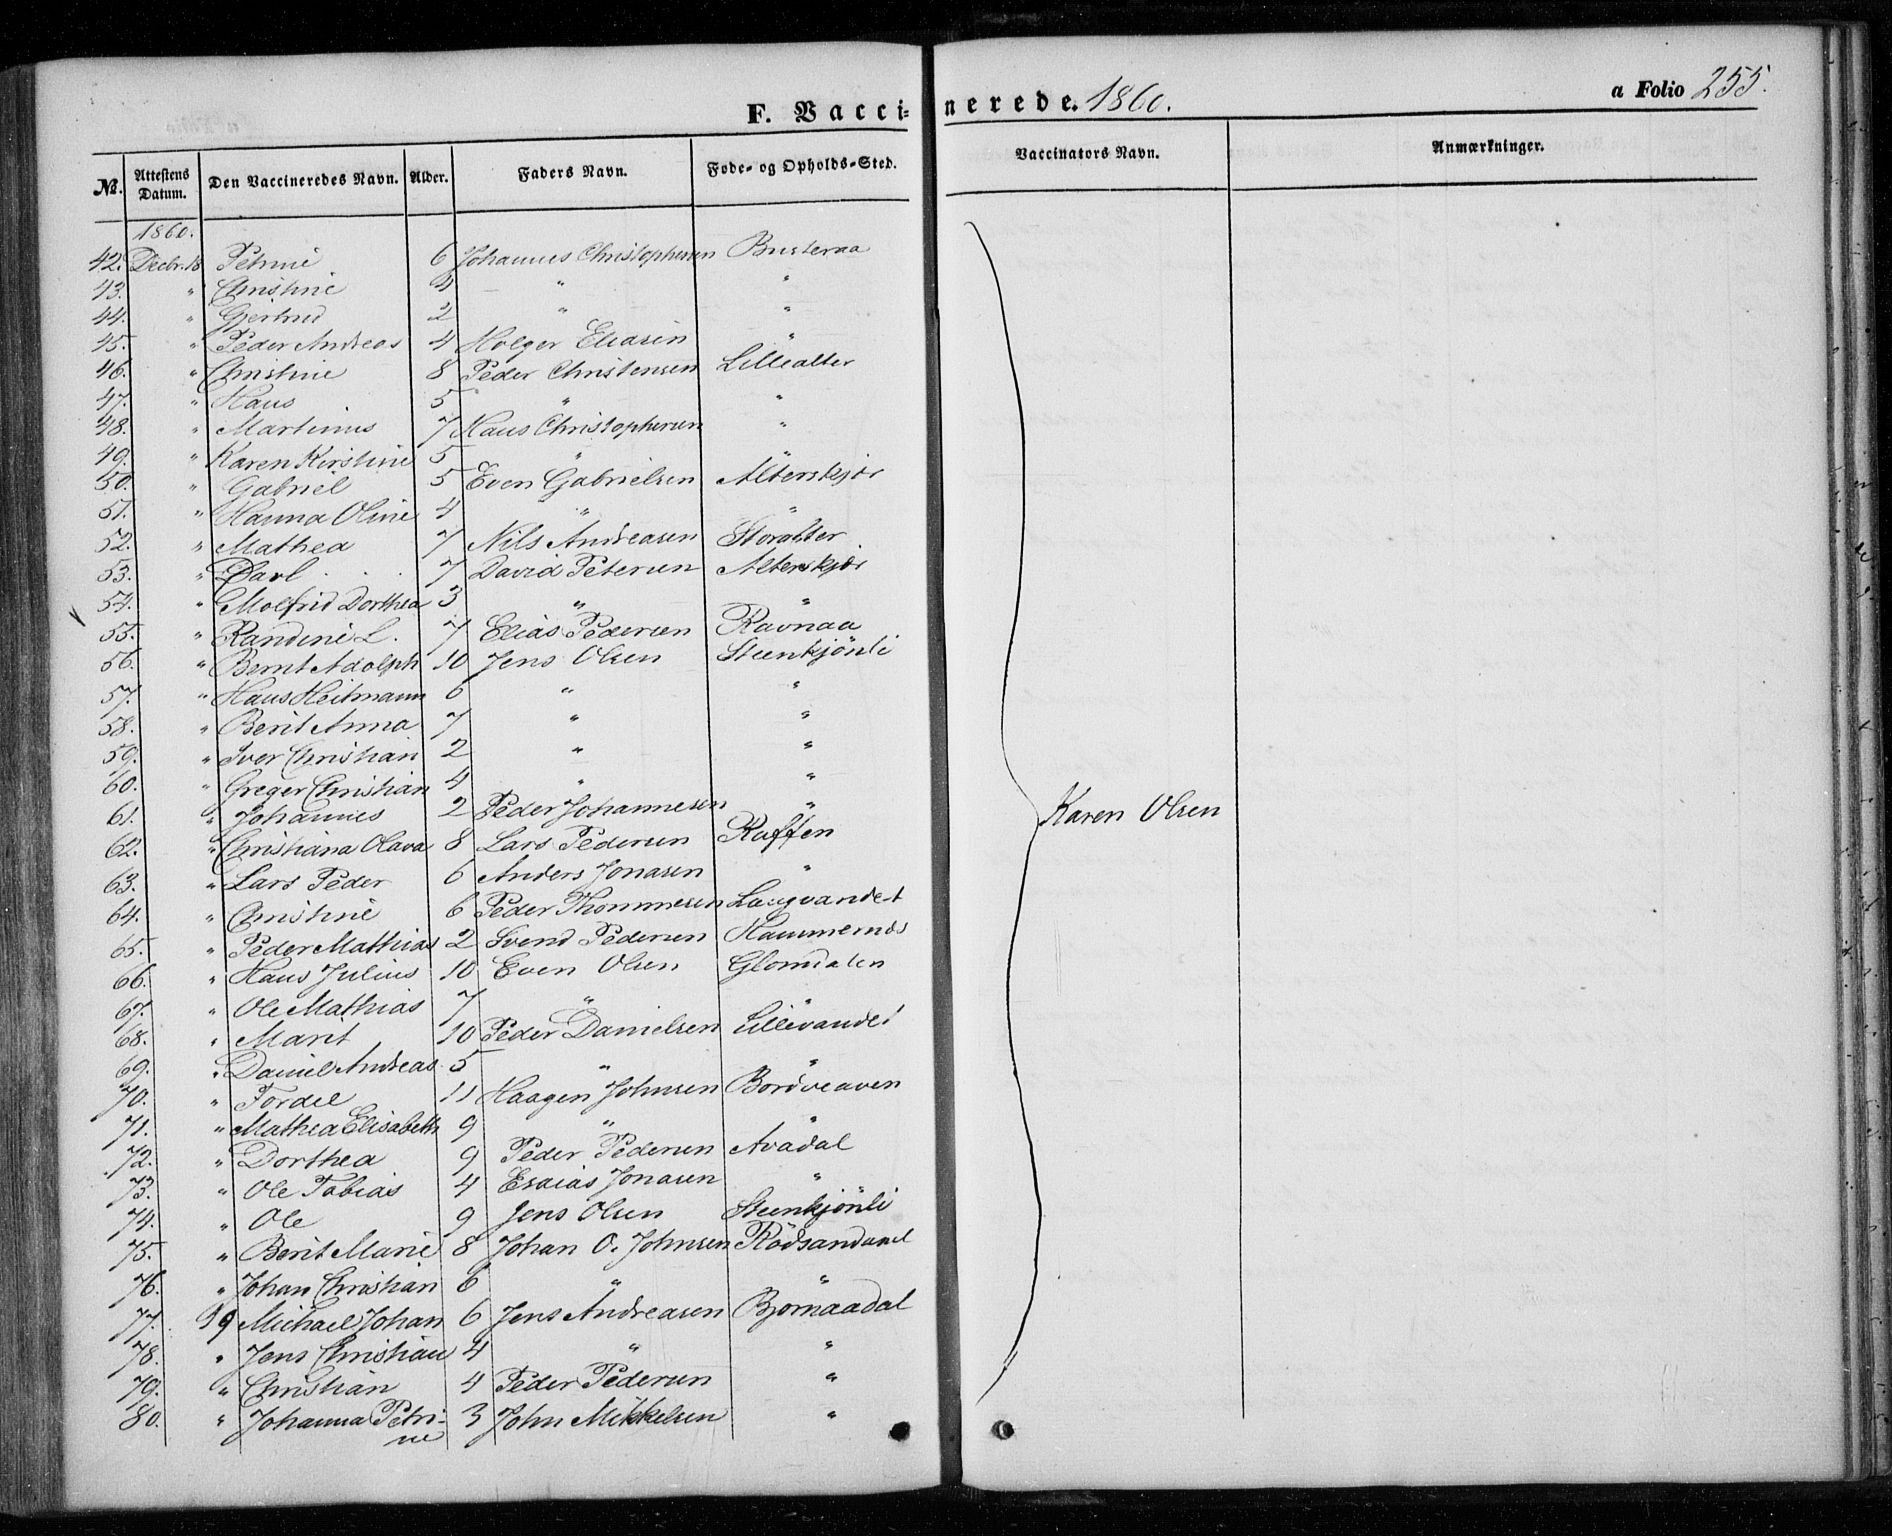 F. Vaccinerede. 1860. a Folio 255.
No. Attestens Datum. Den Vaccineredes Navn. Alder. Faders Navn. Føde- og Opholds-Sted. Vaccinators Navn. Anmærkninger.
1860.
42. Decbr. 18 Petrine 6 Johannes Christophersen Busteraa
43. " Christine 4 " "
44. " Gjertrud 2 " "
45. " Peder Andreas 4 Holger Eliasen "
46. " Christine 8 Peder Christensen Lillealter
47. " Hans 5 " "
48. " Martinus 7 Hans Christophersen "
49. " Karen Kirstine 5 "
50. " Gabriel 5 Even Gabrielsen Alterskjær
51. " Hanna Oline 4 " "
52. " Mathea 7 Nils Andreasen Storalter
53. " Carl 7 David Petersen Alterskjær
54. " Molfrid Dorthea 3 " "
55. " Randine L. 7 Elias Pedersen Ravnaa
56. " Bernt Adolph 10 Jens Olsen Steenkjønli
57. " Hans Heitmann 6 " "
58. " Berit Anna 7 " "
59. " Iver Christian 2 " "
60. " Greger Christian 4 " "
61. " Johannes 2 Peder Johannesen "
Karen Olsen
62. " Christiana Olava 8 Lars Pedersen Røffen
63. " Lars Peder 6 Anders Jonasen "
64. " Christine 6 Peder Thommesen Langvandet
65. " Peder Mathias 2 Svend Pedersen Hammernæs
66. " Hans Julius 10 Even Olsen Glomdalen
67. " Ole Mathias 7 "
68. " Marit 10 Peder Danielsen Lillevandet
69. " Daniel Andreas 5 " "
70. " Fordel 11 Haagen Johnsen Bordveaven
71. " Mathea Elisabeth 9 "
72. " Dorthea 9 Peder Pedersen Avadal
73. " Ole Tobias 4 Esaias Jonasen "
74. " Ole 9 Jens Olsen Steenkjønli
75. " Berit Marie 8 Johan O. Johnsen Rødsandaml
76. " Johan Christian 6 " "
77. 19 Michael Johan 6 Jens Andreasen Bjørnaadal
78. " Jens Christian 4 " "
79. " Christian 4 Peder Pedersen "
80. " Johanna Petri- 3 John Mikkelsen "
ne